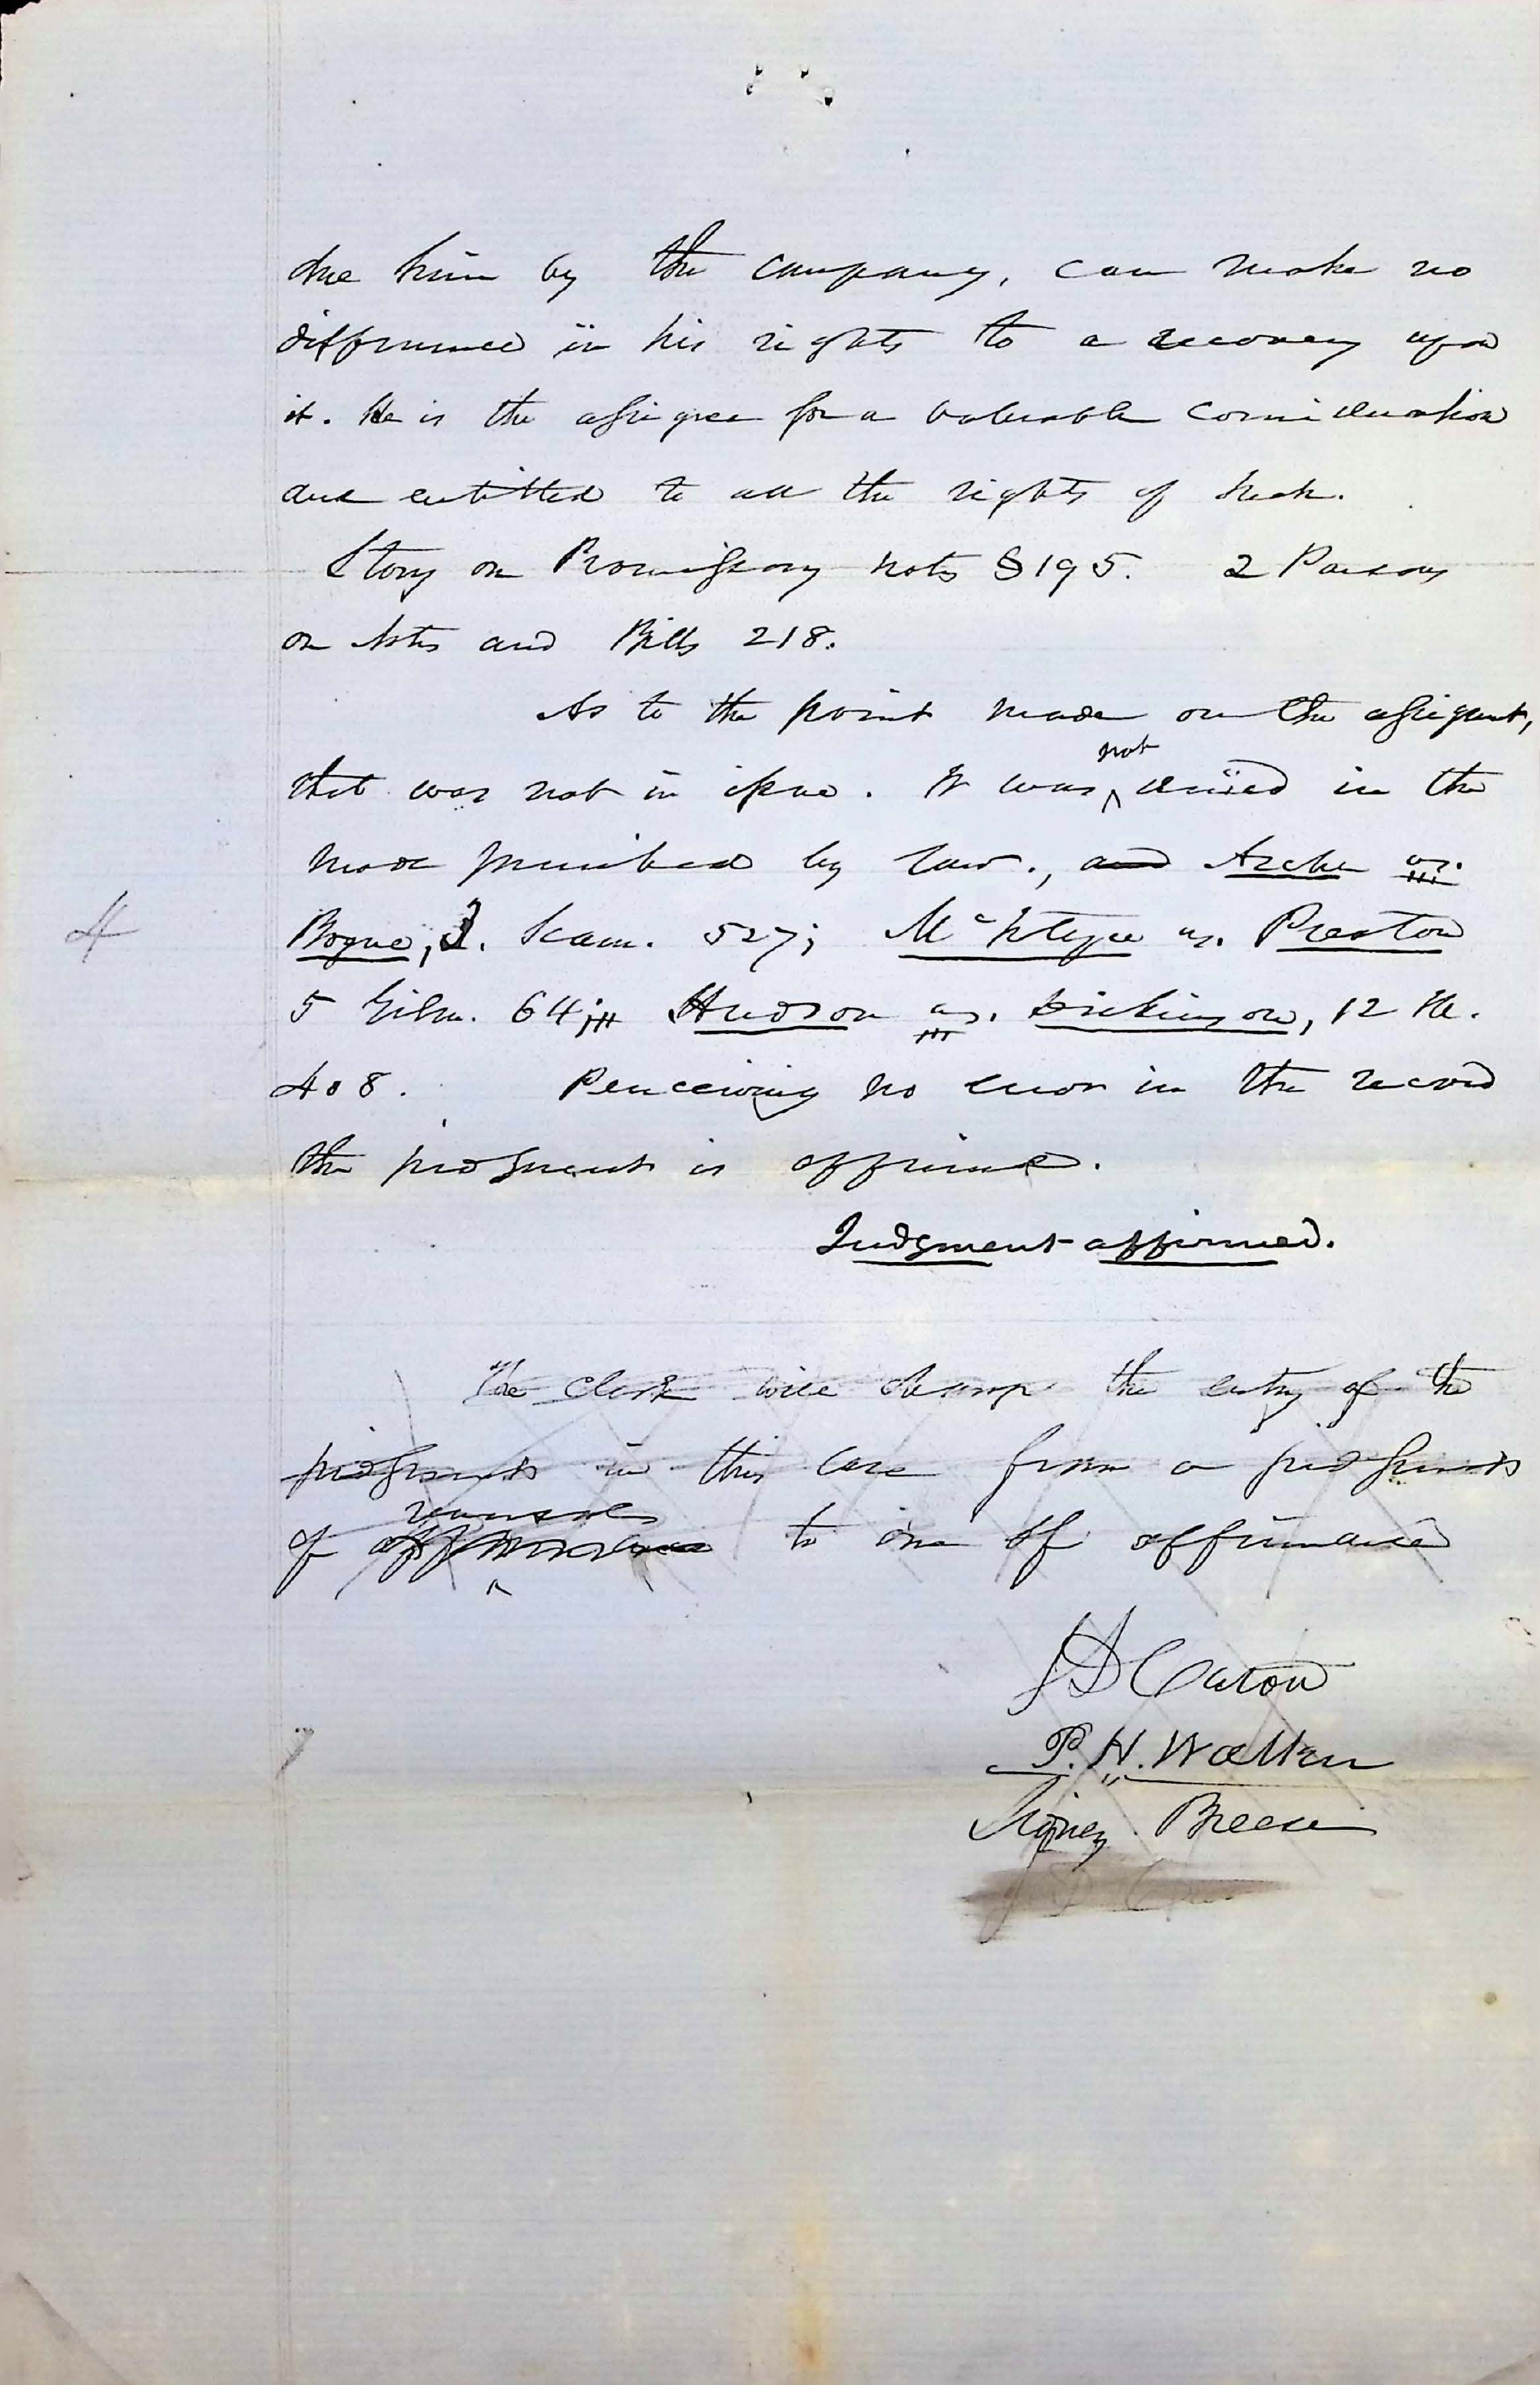 due him by the company, can make no
difference in his rights to a recovery upon
it. He is the assignee for a valuable consideration
and entitled to all the rights of such.
Story on Promissory notes § 195. 2 Parsons
on Notes and Bills 218.
As to the point made on the assignment,
that was not in issue. It was not denied in the
mode prescribed by law., and Archer vs.
4
Bogue, 3. Scam. 527; McIntyre vs. Preston
5 Gilm. 64; Hudson vs. Dickinson, 12 Ill.
408. Perceiving no error in the record
the judgment is affirmed.
Judgment affirmed.
The clerk will change the entry of the
judgment in this case from a judgment
reversal
of affirmance to one of affirmance
J D Caton
P. H. Walker
Sidney Breese